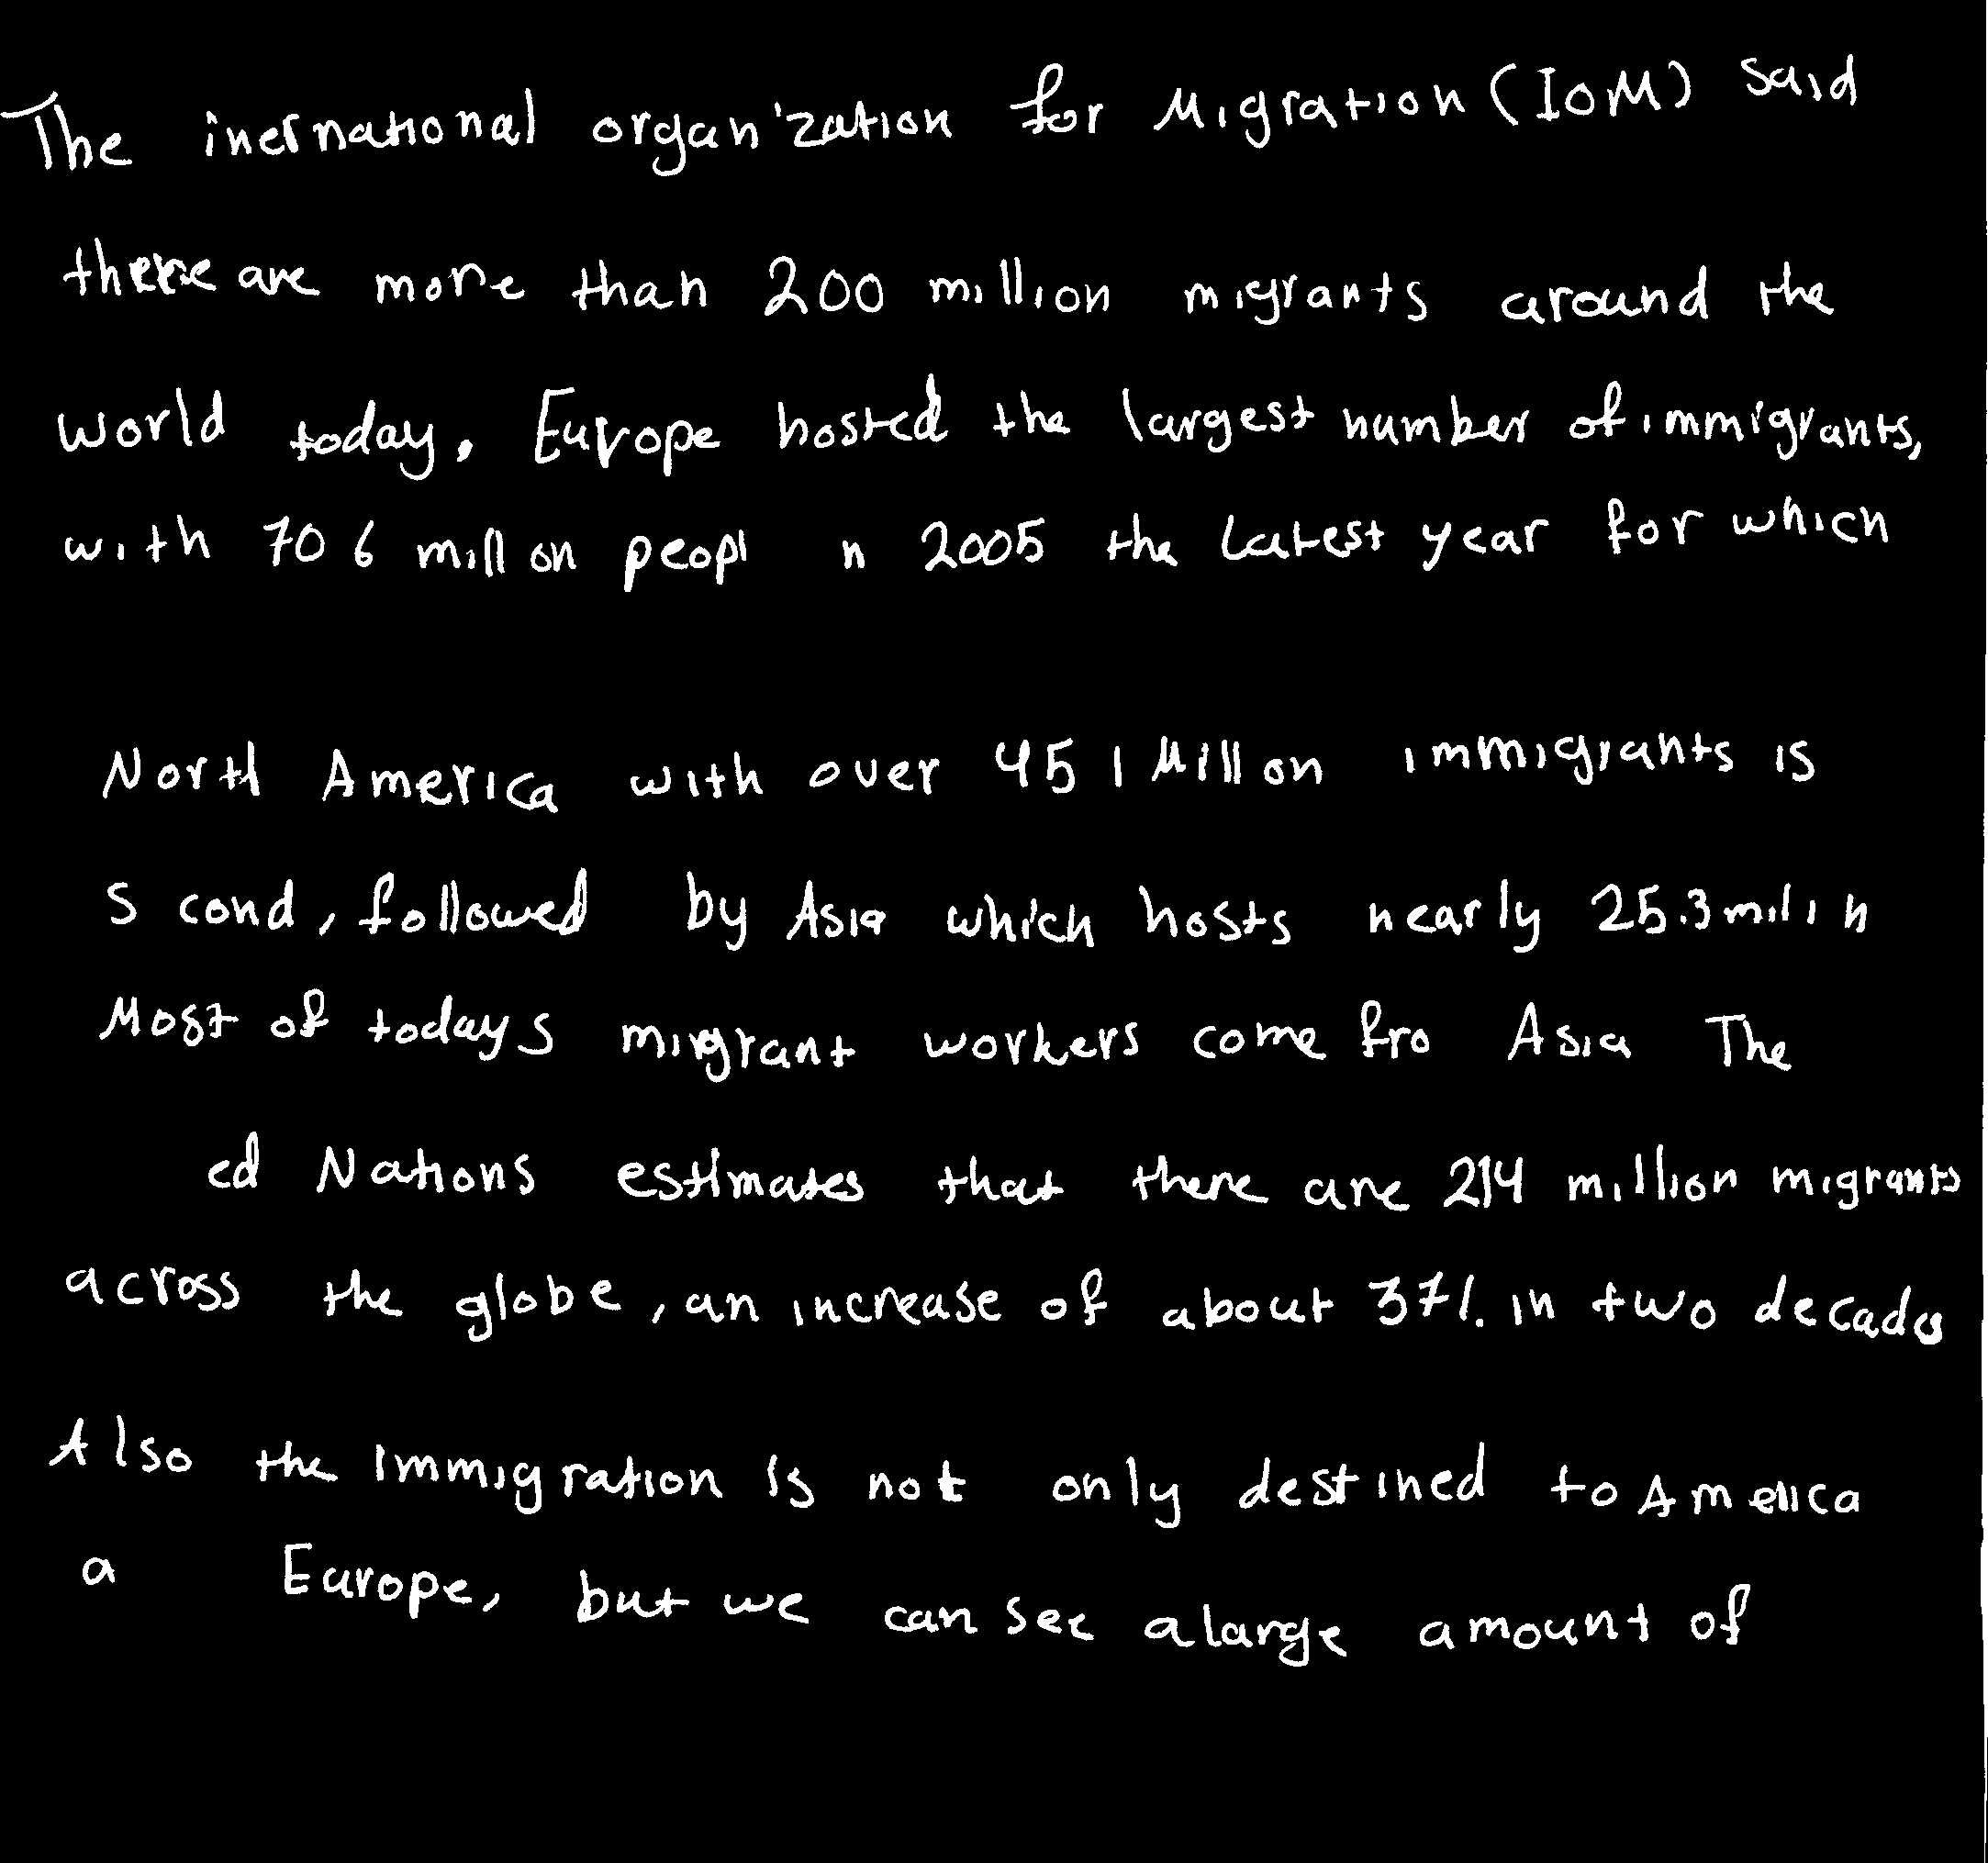 The inernational organization for Migration (IOM) said
there are more than 200 million migrants around the
world today. Europe hosted the largest number of immigrants,
with 70 6 mill on peopl n 2005 the latest year for which
North America with over 45 1 Mill on immigrants is
s cond, followed by Asia which hosts nearly 25.3 mili n
Most of today s migrant workers come fro Asia The
ed Nations estimates that there are 214 million migrants
across the globe, an increase of about 37%. in two decades
Also the immigration is not only destined to America
a Europe, but we can see a large amount of